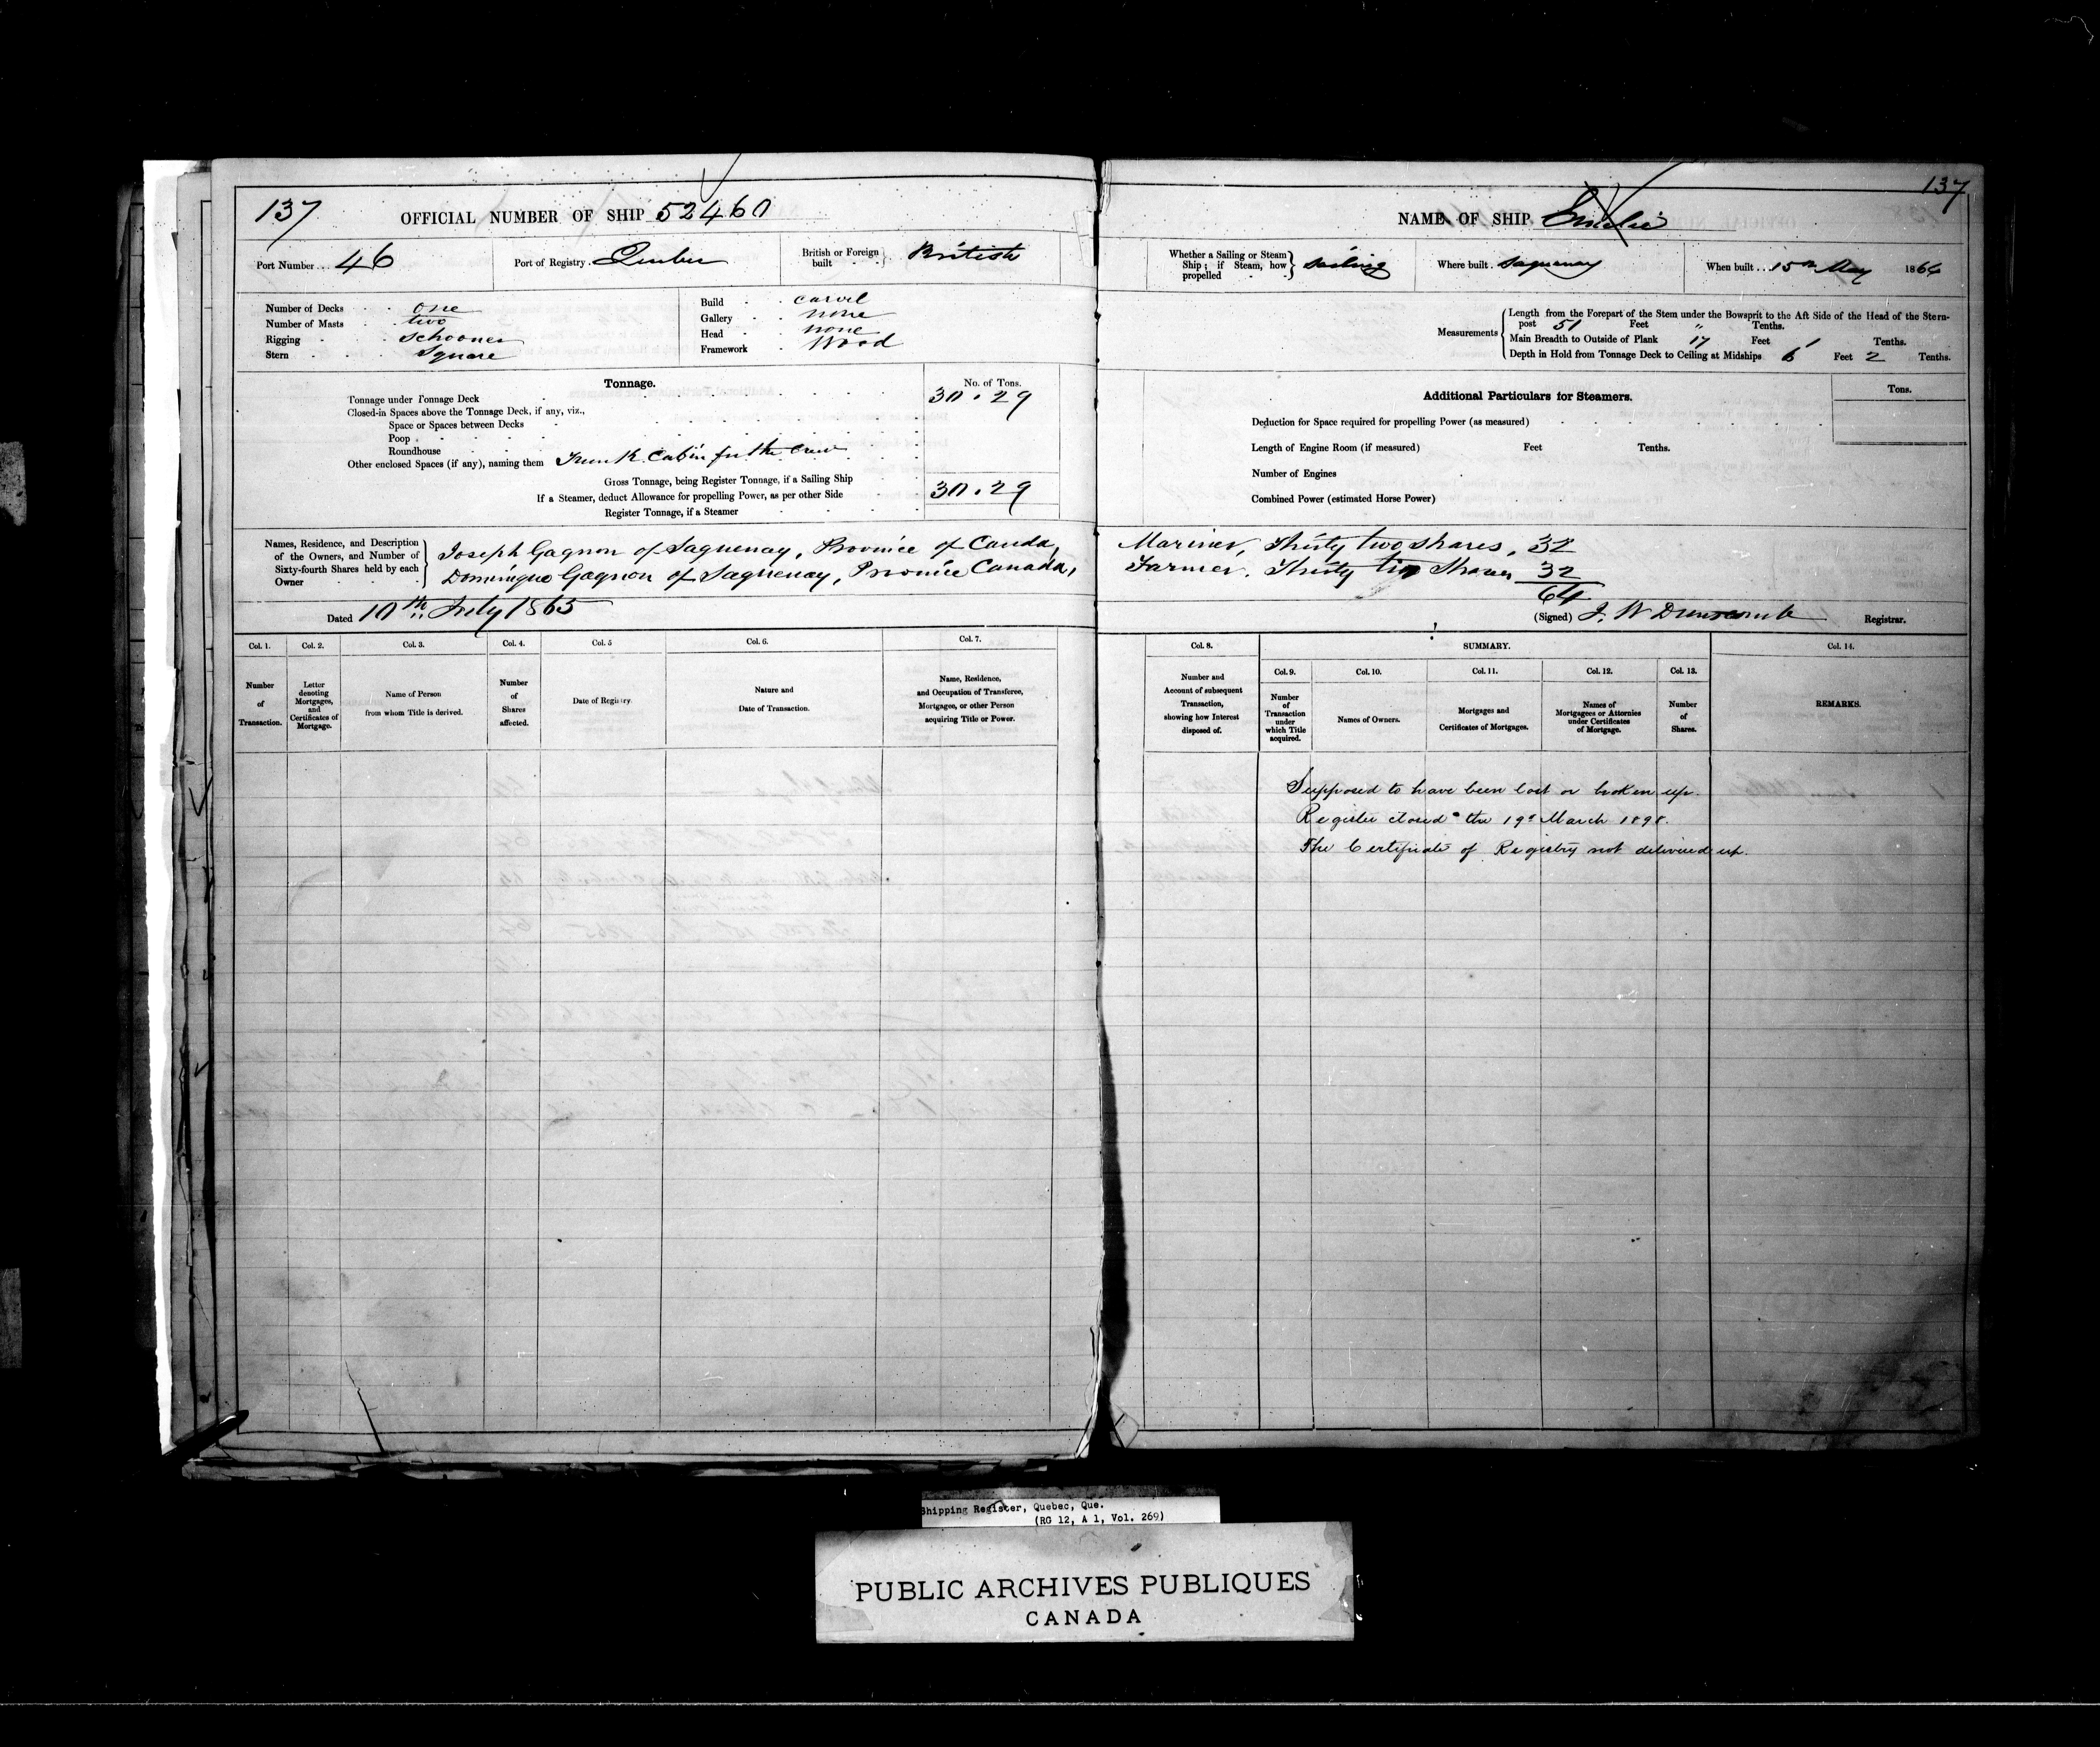 137
137
OFFICIAL NUMBER OF SHIP 52460
NAME OF SHIP Emelie
Port Number... 46
Port of Registry. Quebec
British or Foreign built British
Whether a Sailing or Steam Ship; if Steam, how propelled Sailing
Where built. Saguenay
When built... 15th May 1864
Number of Decks one
Number of Masts two
Rigging Schooner
Stern Square
Build carvel
Gallery none
Head none
Framework Wood
Measurements
Length from the Forepart of the Stem under the Bowsprit to the Aft Side of the Head of the Stern-
post 51 Feet " Tenths.
Main Breadth to Outside of Plank 17 Feet 1 Tenths.
Depth in Hold from Tonnage Deck to Ceiling at Midships 6 Feet 2 Tenths.
Tonnage.
No. of Tons.
Tonnage under Tonnage Deck 30.29
Closed-in Spaces above the Tonnage Deck, if any, viz.,
Space or Spaces between Decks
Poop
Roundhouse
Other enclosed Spaces (if any), naming them Trunk Cabin for the Crew
Gross Tonnage, being Register Tonnage, if a Sailing Ship 30.29
If a Steamer, deduct Allowance for propelling Power, as per other Side
Register Tonnage, if a Steamer
Additional Particulars for Steamers.
Tons.
Deduction for Space required for propelling Power (as measured)
Length of Engine Room (if measured) Feet Tenths.
Number of Engines
Combined Power (estimated Horse Power)
Names, Residence, and Description
of the Owners, and Number of
Sixty-fourth Shares held by each
Owner
Joseph Gagnon of Saguenay, Province of Canda, Mariner, Thirty two shares, 32
Dominique Gagnon of Saguenay, Province Canada, Farmer. Thirty two Shares 32
64
Dated 10th July 1865
(Signed) J. W Dunscomb Registrar.
Col. 1.
Col. 2.
Col. 3.
Col. 4.
Col. 5
Col. 6.
Col. 7.
Col. 8.
SUMMARY.
Col. 9.
Col. 10.
Col. 11.
Col. 12.
Col. 13.
Col. 14.
Number of Transaction.
Letter denoting Mortgages, and Certificates of Mortgage.
Name of Person from whom Title is derived.
Number of Shares affected.
Date of Registry.
Nature and Date of Transaction.
Name, Residence, and Occupation of Transferee, Mortgagee, or other Person acquiring Title or Power.
Number and Account of subsequent Transaction, showing how Interest disposed of.
Number of Transaction under which Title acquired.
Names of Owners.
Mortgages and Certificates of Mortgages.
Names of Mortgagees or Attornies under Certificates of Mortgage.
Number of Shares.
REMARKS.
Supposed to have been lost or broken up.
Register closed the 19th March 1898.
The Certificate of Registry not delivered up.
Shipping Register, Quebec, Que.
(RG 12, A 1, Vol. 269)
PUBLIC ARCHIVES PUBLIQUES
CANADA